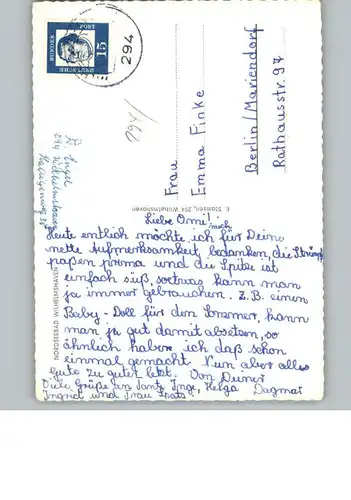 DEUTSCHE
BUNDES
POST
15
294
1x62
D. Engel
294 Wilhelmshaven
Frau
Emma Finke
Berlin/Mariendorf
Rathausstr. 97
E. Stomsen, 294 Wilhelmshaven
NORDSEEBAD WILHELMSHAVEN
Liebe Omi!
Heute entlich möchte ich mich für Deine
nette Aufmerksamkeit bedanken, die Strümpfe
paßen prima und die Spitze ist
einfach süß, soetwas kann man
ja immer gebrauchen. Z.B. einen
Baby-Doll für den Sommer, kann
man ja gut damit absetzen, so
ähnlich habe ich daß schon
einmal gemacht. Nun aber alles
Gute zu guter letzt. Von Deiner
Dagmar
Viele Grüße an Tante Inge, Helga
Ingrid und Frau